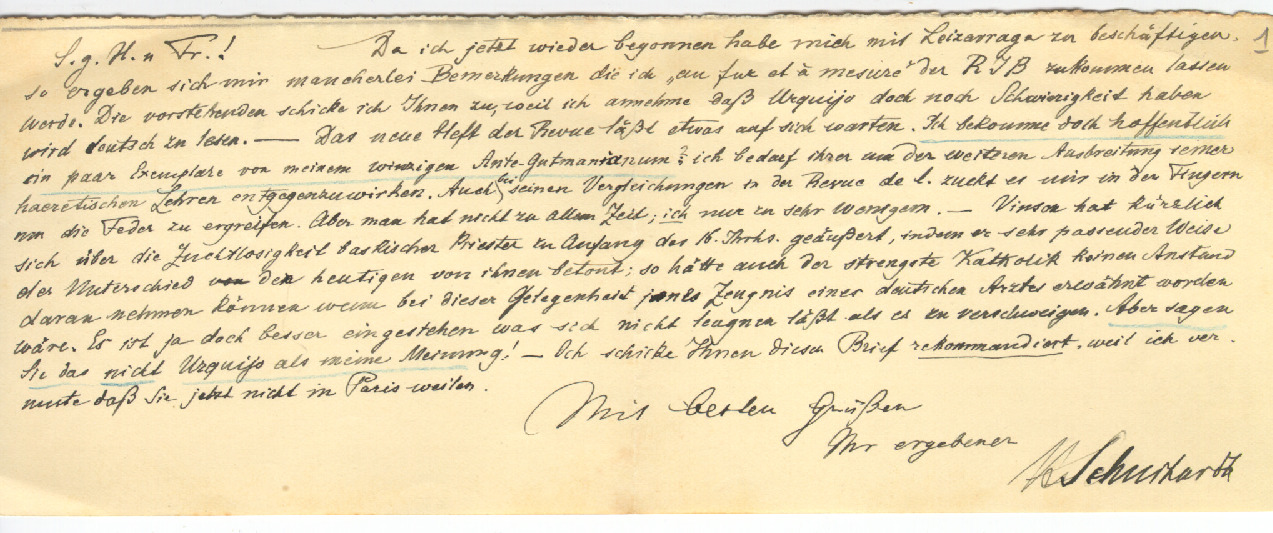 S. g. H. u Fr.! Da ich jetzt wieder begonnen habe mich mit Leizarraga zu beschäftigen, 1
so ergeben sich mir mancherlei Bemerkungen die ich „au fur et à mesure" der RIB zukommen lassen
werde. Die vorstehenden schicke ich Ihnen zu, weil ich annehme daß Urquijo doch noch Schwierigkeit haben
wird deutsch zu lesen. — Das neue Heft der Revue läßt etwas auf sich warten. Ich bekomme doch hoffentlich
ein paar Exemplare von meinem winzigen Ante-Gutmanianum? ich bedarf ihrer um der weiteren Ausbreitung seiner
haeretischen Lehren entgegenzuwirken. Auch bei seinen Vergleichungen in der Revue de l. zuckt es mir in den Fingern
um die Feder zu ergreifen. Aber man hat nicht zu allem Zeit; ich nur zu sehr wenigem. — Vinson hat kürzlich
sich über die Zuchtlosigkeit baskischer Priester zu Anfang des 16. Jhrhs. geäußert, indem er sehr passender Weise
den Unterschied von den heutigen von ihnen betont; so hätte auch der strengste Katholik keinen Anstand
daran nehmen können wenn bei dieser Gelegenheit jenes Zeugnis eines deutschen Arztes erwähnt worden
wäre. Es ist ja doch besser eingestehen was sich nicht leugnen läßt als es zu verschweigen. Aber sagen
Sie das nicht Urquijo als meine Meinung! — Ich schicke Ihnen diesen Brief rekommandiert, weil ich ver-
mute daß Sie jetzt nicht in Paris weilen.
Mit besten Grüßen
Ihr ergebener
H Schuchardt